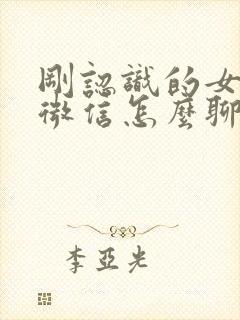 剛認識的女
微信怎麼聊
李亞光